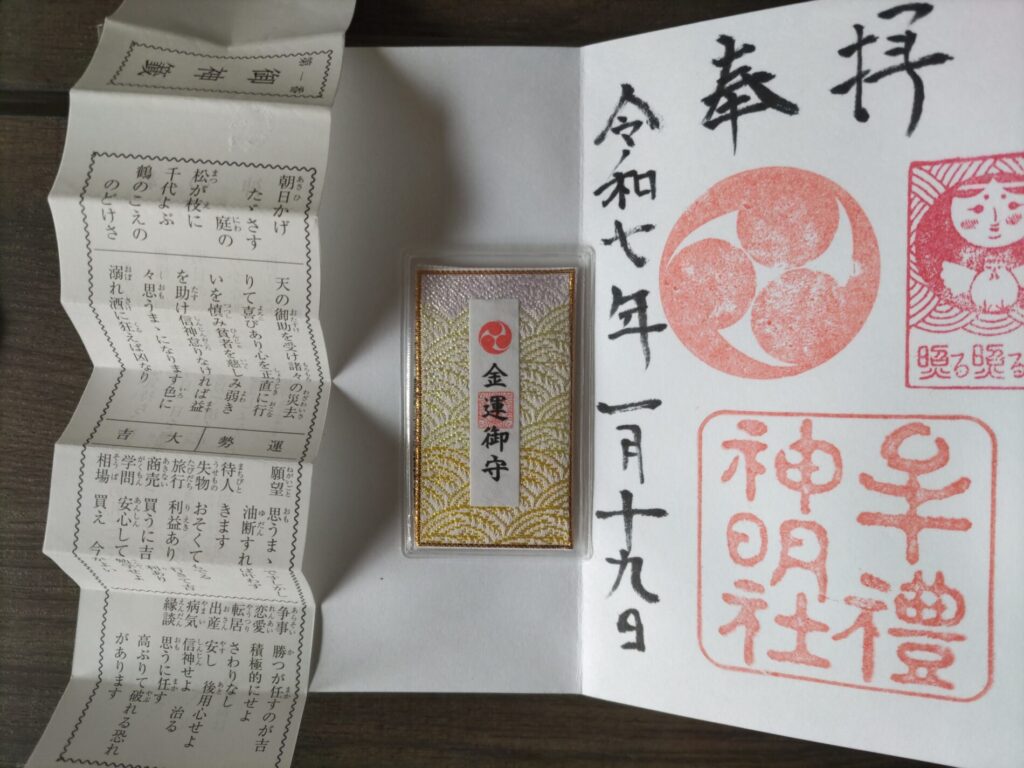 第一番
御神籤
朝日かげ
たゞさす庭の
松が枝に
千代よぶ
鶴のこえの
のどけさ
天の御助を受け諸々の災去
りて喜びあり心を正直に行
いを慎み貧者を慈しみ弱き
を助け信神怠りなければ益
々思うまゝになります色に
溺れ酒に狂えば凶なり
運勢
大吉
願望 思うまゝ
油断すれば
待人 きます
失物 おそくても
旅行 利益あり
商売 買うに吉
学問 安心して
相場 買え
争事 勝つが任すのが吉
恋愛 積極的にせよ
転居 さわりなし
出産 安し 後用心せよ
病気 信神せよ 治る
縁談 思うに任す
高ぶりて破れる恐れ
があります
金運御守
奉拝
令和七年一月十九日
牟禮
神明社